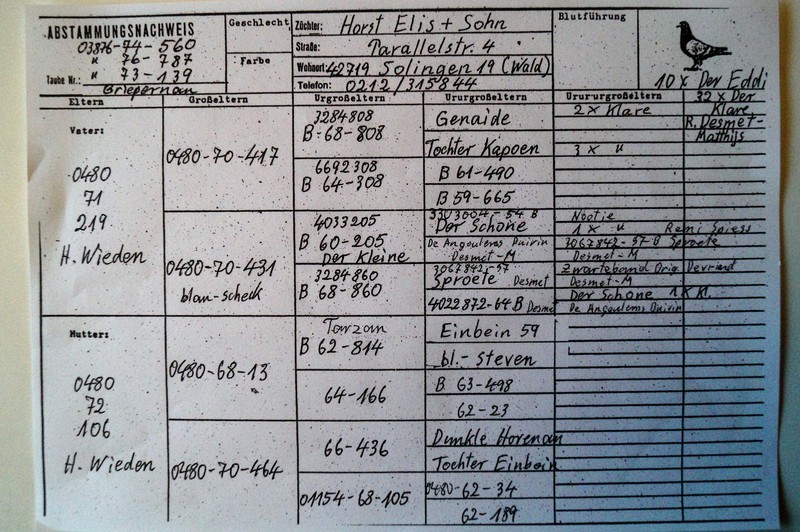 ABSTAMMUNGSNACHWEIS
03876-74-560
" 76-787
Taube Nr.: " 73-139
Griepernau
Geschlecht
Farbe
Züchter: Horst Elis + Sohn
Straße: Parallelstr. 4
Wohnort: 42719 Solingen 19 (Wald)
Telefon: 0212/315844
Blutführung
10 x Der Eddi
Eltern
Großeltern
Urgroßeltern
Ururgroßeltern
Urururgroßeltern
32 x Der
Klare
R. Desmet-
Matthijs
Vater:
0480
71
219
H. Wieden
0480-70-417
0480-70-431
blau-scheck
3284808
B-68-808
6692308
B 64-308
4033205
B 60-205
Der Kleine
3284860
B 68-860
Genaide
Tochter Kapoen
B 61-490
B 59-665
3303604-54 B
Der Schone
De Angouleme Duivin
Desmet-M
3067842-57
Sproete Desmet
4022872-64 B Desmet
2 x Klare
3 x "
Nootie
1 x " Remi Spiess
3067842-57 B Sproete
Desmet-M
Zwarteband Orig. Devriend
Desmet-M
Der Schone 1 x Kl.
De Angoulems Duivin
Mutter:
0480
72
106
H. Wieden
0480-68-13
0480-70-464
Tarzan
B 62-814
64-166
66-436
01154-68-105
Einbein 59
bl.-Steven
B 63-498
62-23
Dunkle Horenan
Tochter Einbein
0480-62-34
62-189